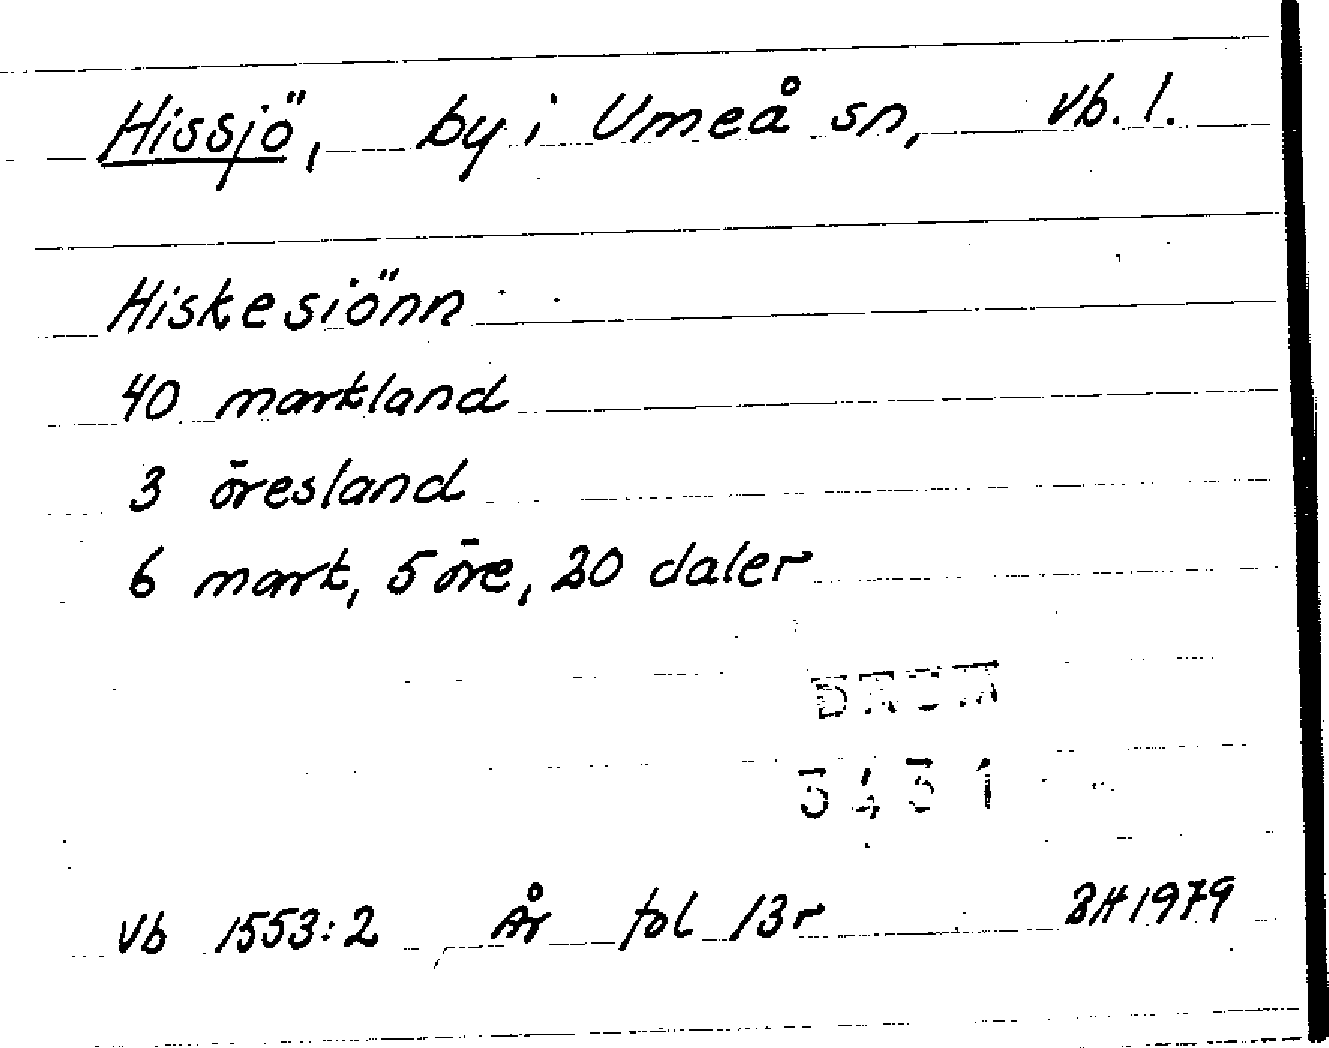 Hissjö, by i Umeå sn, vb. l.
Hiskesiönn
40 markland
3 öresland
6 mark, 5 öre, 20 daler
DAUM
3431
vb 1553:2 År fol 13r BH 1979